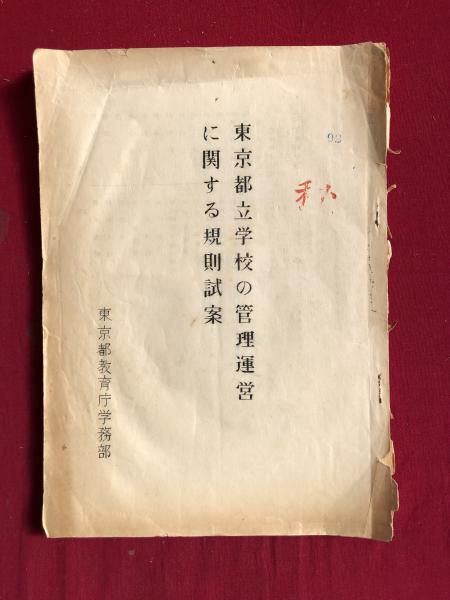 東京都立学校の管理運営
に関する規則試案
東京都教育庁学務部